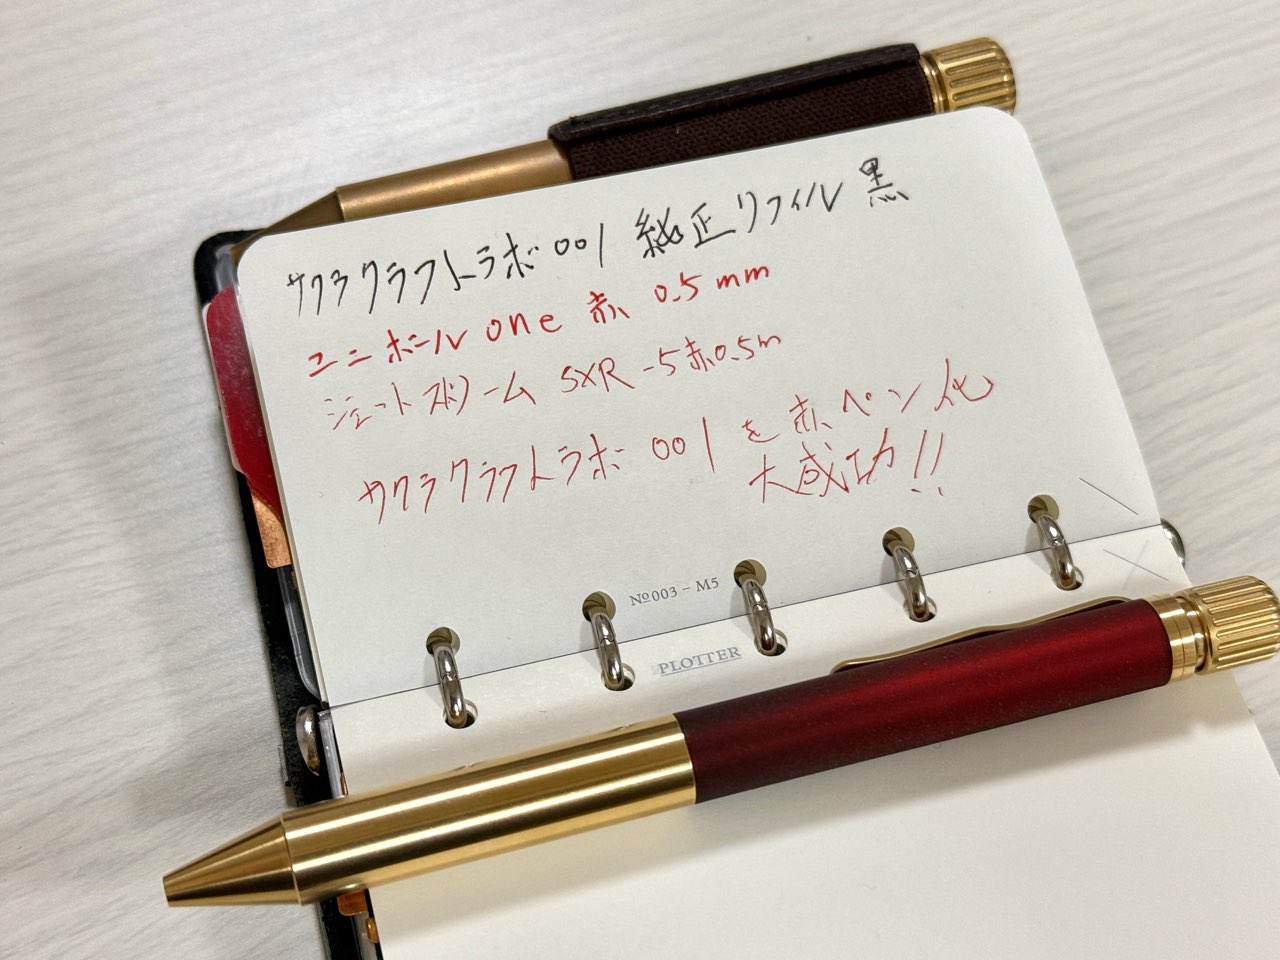 サクラクラフトラボ001 純正リフィル 黒
ユニボール one 赤 0.5mm
ジェットストリーム SXR-5 赤0.5m
サクラクラフトラボ 001 を赤ペン化
大成功!!
№003 – M5
PLOTTER